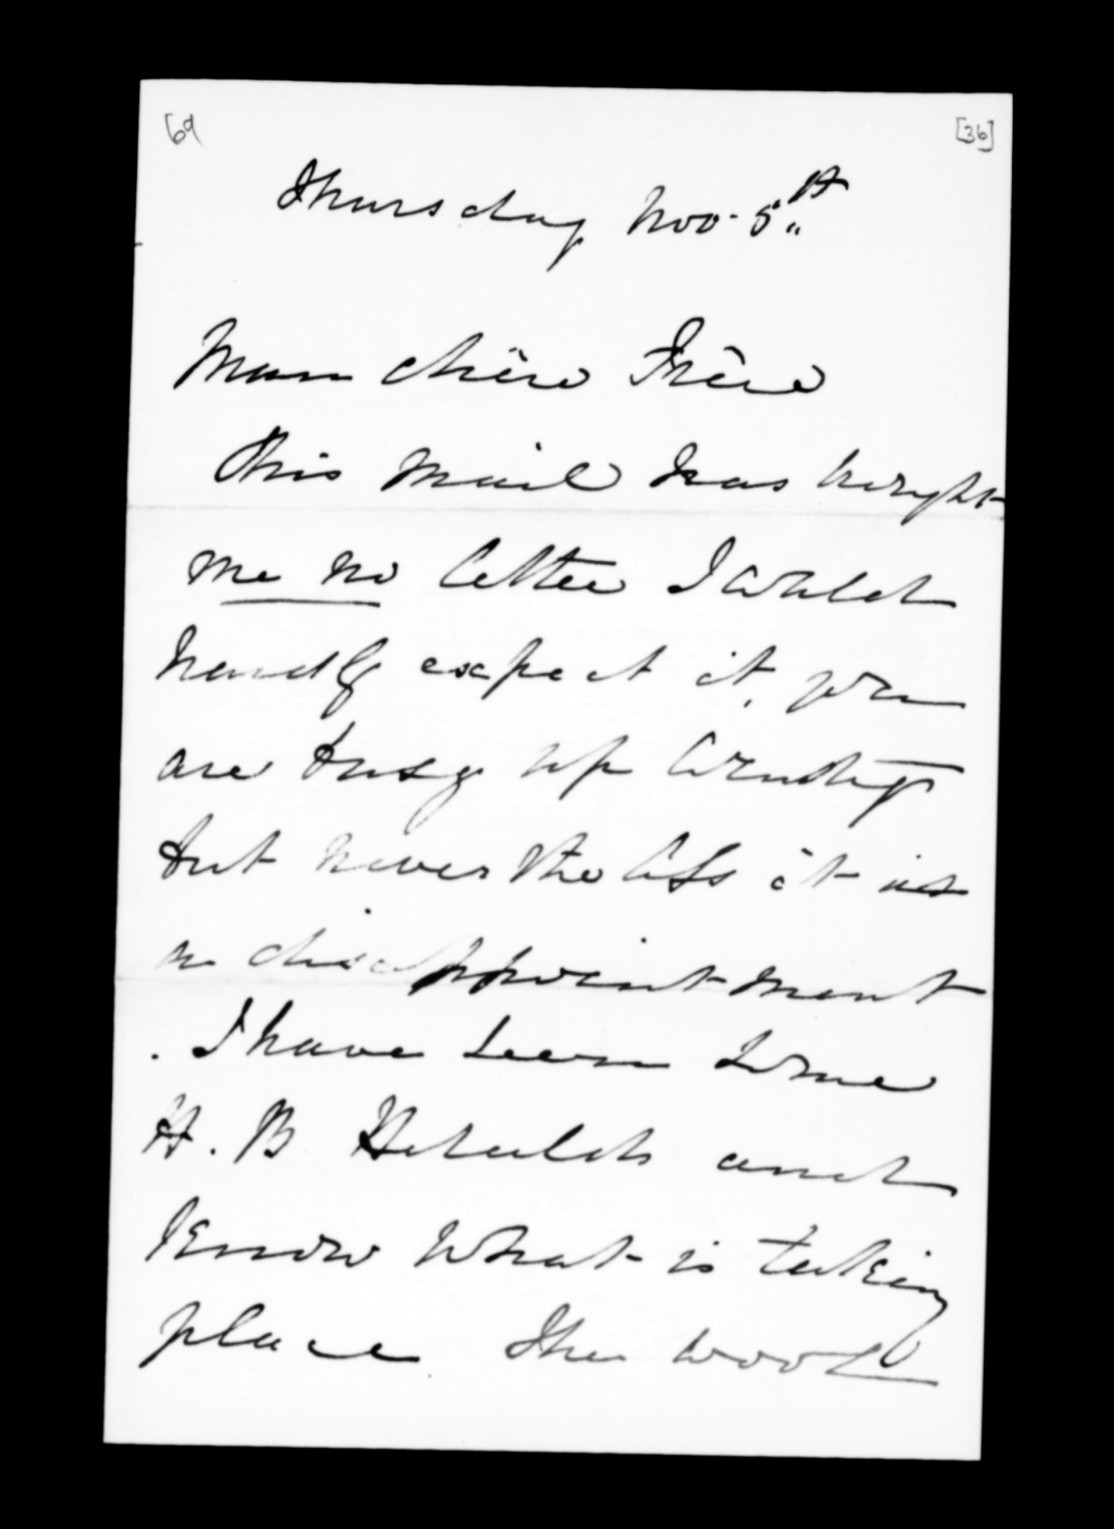 [69
[36]
Thursday Nov. 5th
Mon chère Frère
This Mail has brought
me no letter I could
hardly expect it, you
are busy up Country
but never the less it is
a disappointment
. I have seen some
H. B Heralds and
know what is taking
place The wool